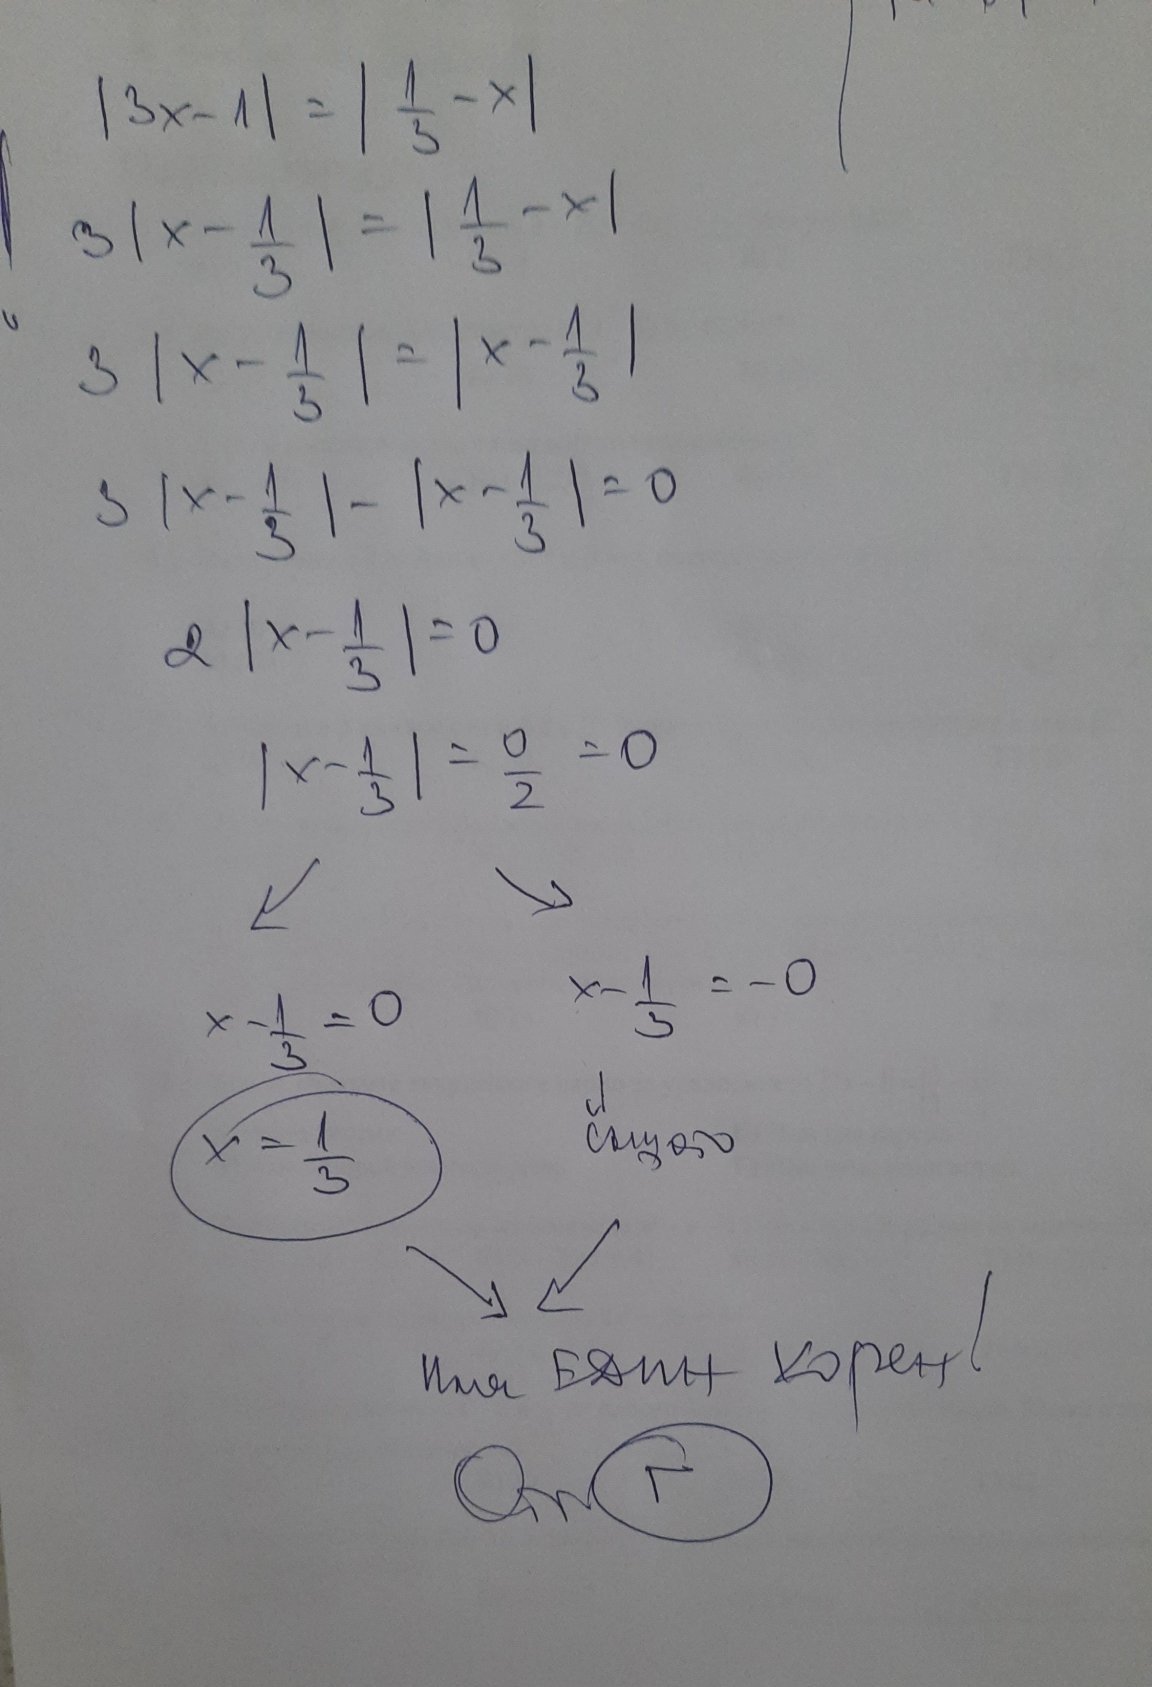 |3x-1| = |1/3 - x|
3|x - 1/3| = |1/3 - x|
3|x - 1/3| = |x - 1/3|
3|x - 1/3| - |x - 1/3| = 0
2|x - 1/3| = 0
|x - 1/3| = 0/2 = 0
x - 1/3 = 0
x - 1/3 = -0
x = 1/3
същото
Има ЕДИН корен!
Отг Г